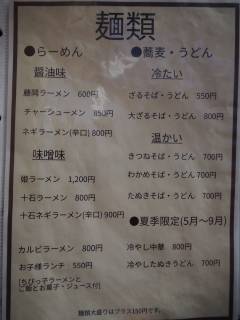 麺類
●らーめん
醤油味
藤岡ラーメン 600円
チャーシューメン 850円
ネギラーメン(辛口) 800円
味噌味
姫ラーメン 1,200円
十石ラーメン 800円
十石ネギラーメン(辛口) 900円
カルビラーメン 800円
お子様ランチ 550円
(ちびっ子ラーメンと
ご飯とお菓子・ジュース付)
●蕎麦・うどん
冷たい
ざるそば・うどん 550円
大ざるそば・うどん 800円
温かい
きつねそば・うどん 700円
わかめそば・うどん 700円
たぬきそば・うどん 700円
●夏季限定(5月～9月)
冷やし中華 800円
冷やしたぬきうどん 700円
麺類大盛りはプラス150円です。